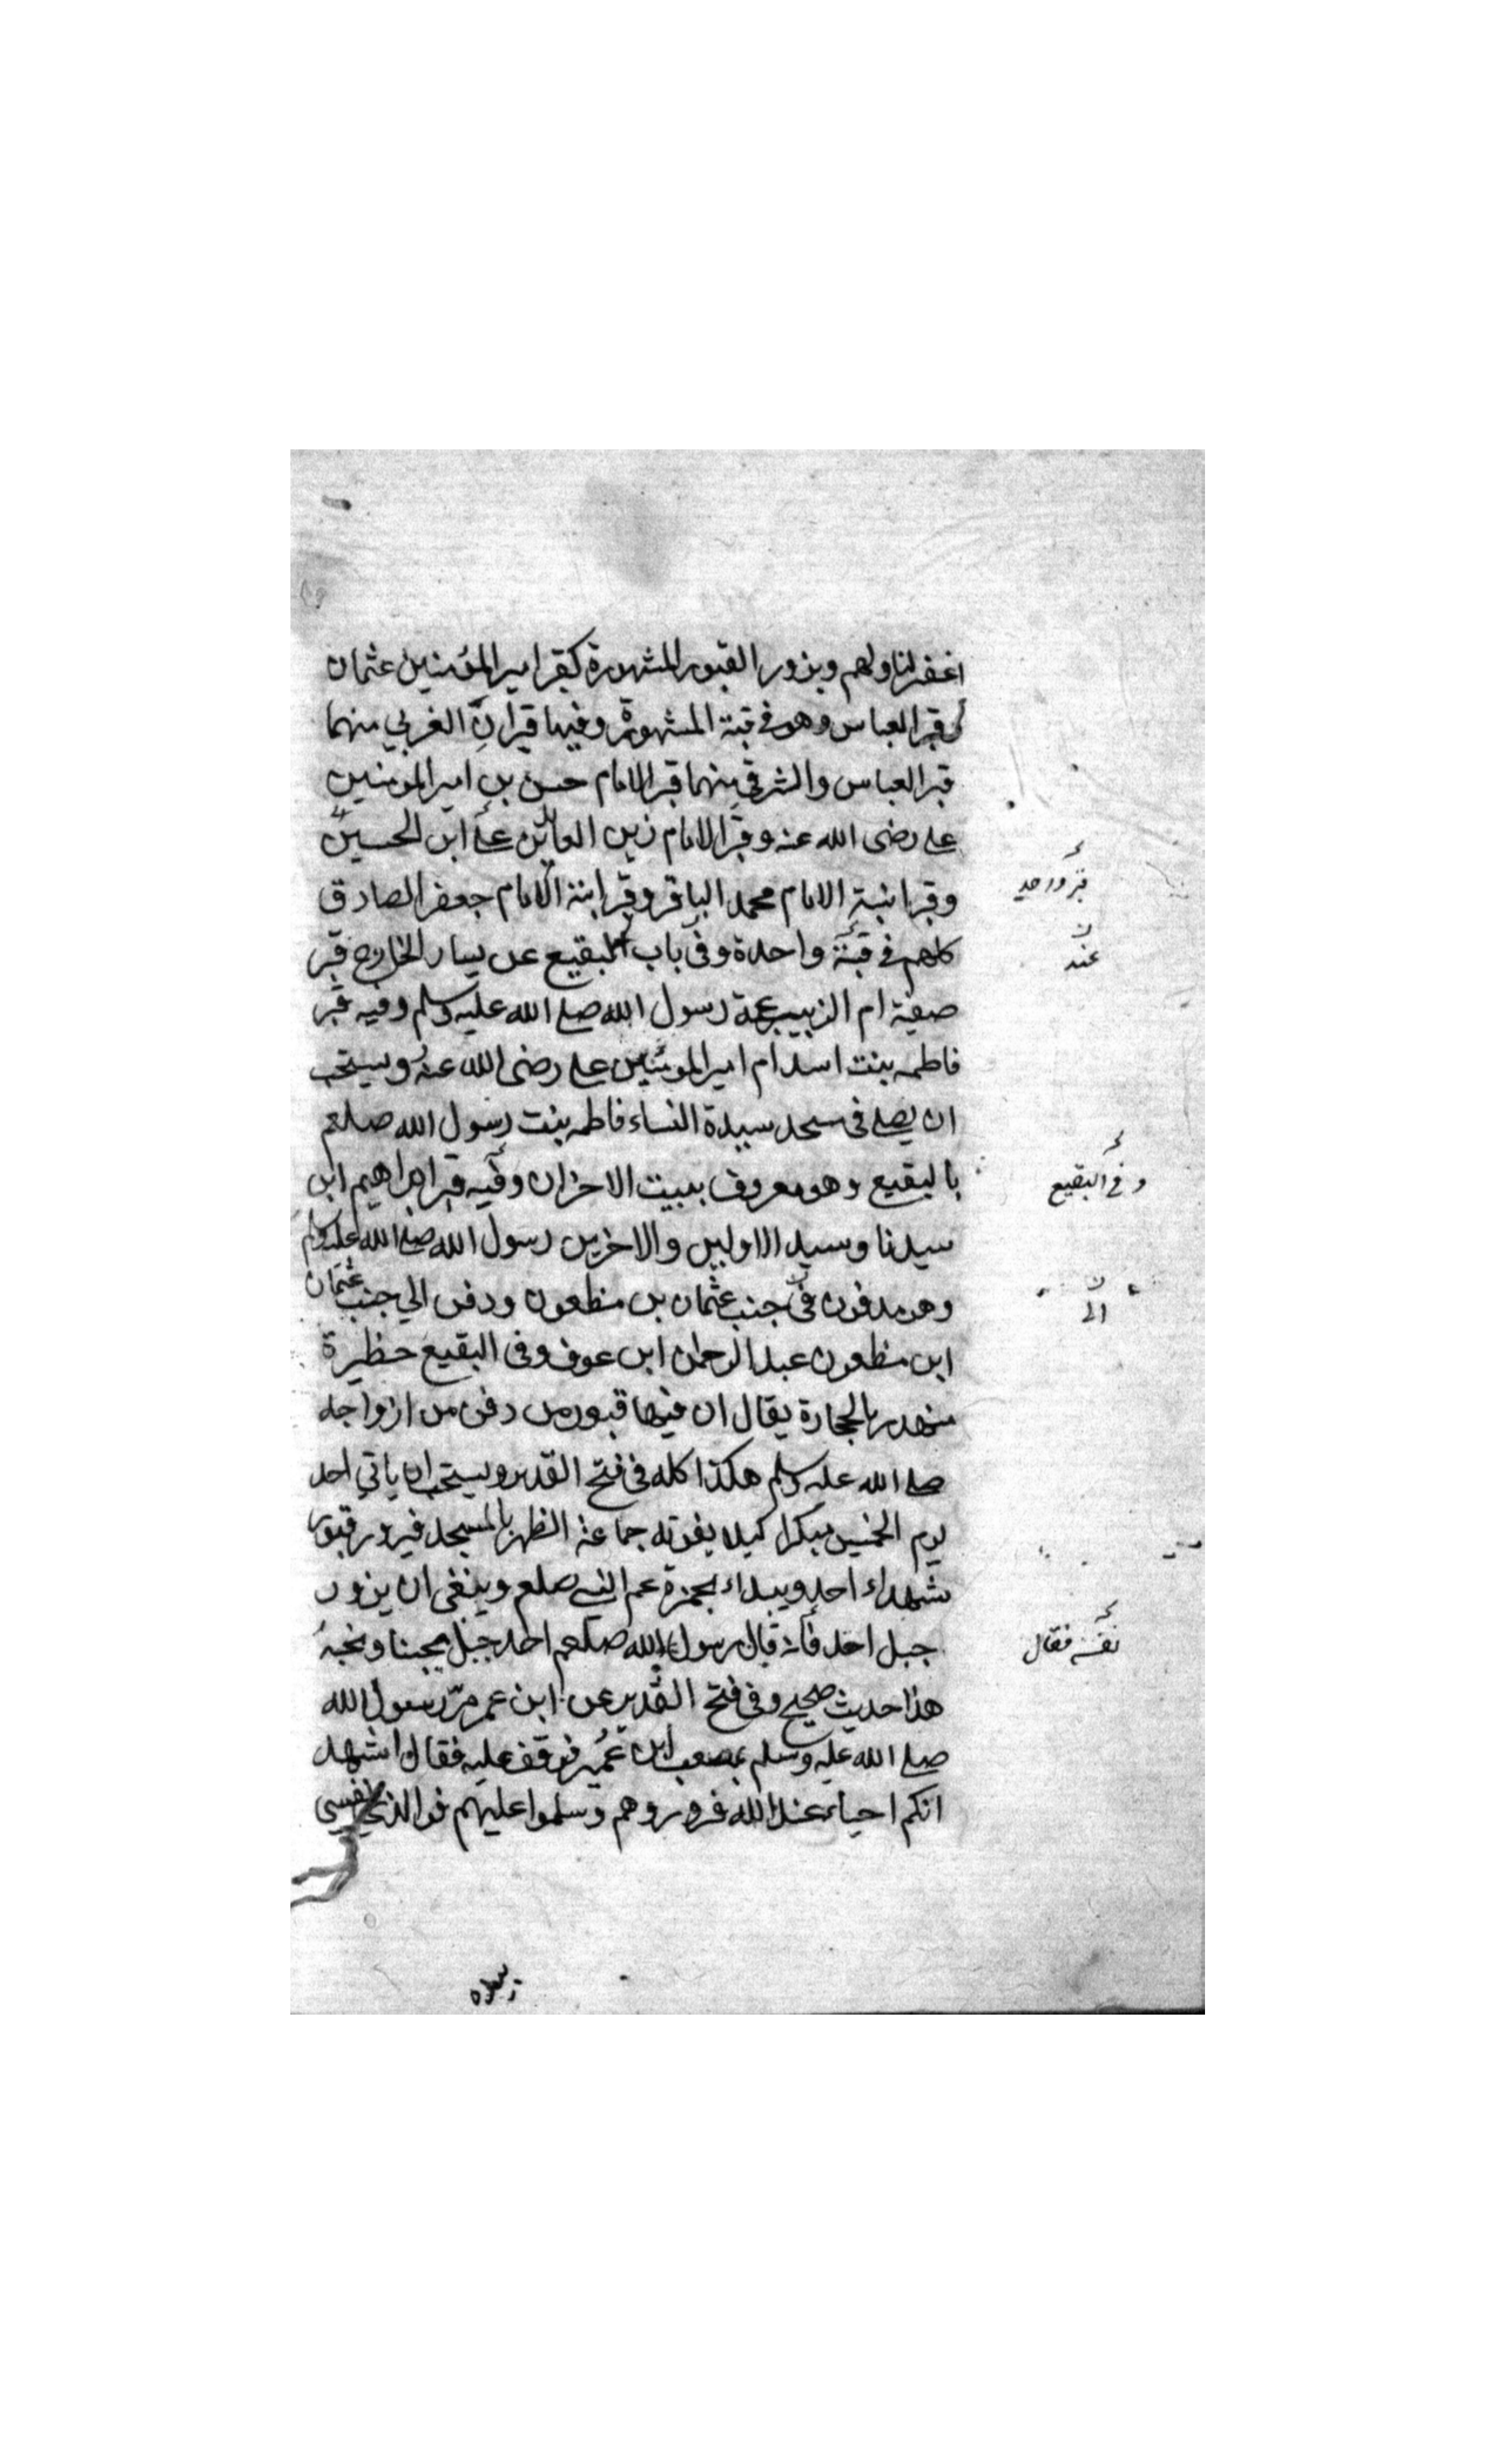 اغفر لنا ولهم ويزور القبور المشهورة كقبر امير المؤمنين عثمان
وقبر العباس وهو فى قبته المشهورة وفيها قبران الغربي منهما
قبر العباس والشرقى منهما قبر الامام حسن بن امير المومنين
على رضى الله عنه وقبر الامام زين العابدين على ابن الحسين
وقبر ابنه الامام محمد الباقر وقبر ابنه الامام جعفر الصادق
قبر واحد
كلهم فى قبة واحدة وفى باب البقيع عن يسار الخارج قبر
عند
صفية ام الزبير عمة رسول الله صلى الله عليه وسلم وفيه قبر
فاطمه بنت اسد ام امير المومنين على رضى الله عنه ويستحب
ان يصلى فى مسجد سيدة النساء فاطمه بنت رسول الله صلعم
بالبقيع وهو معروف ببيت الاحزان وفيه قبر ابراهيم ابن
وفى البقيع
سيدنا وسيد الاولين والاخرين رسول الله صلى الله عليه وسلم
وهو مدفون فى جنب عثمان بن مظعون ودفن الي جنب عثمان
الى
ابن مظعون عبد الرحمان ابن عوف وفى البقيع حظيرة
بالحجارة يقال ان فيها قبور من دفن من ازواجه
صلى الله عليه وسلم هكذا كله فى فتح القدير ويستحب ان ياتي احد
يوم الخميس مبكرا كيلا يفوته جماعة الظهر بالمسجد فيزور قبور
شهداء احد ويبداء بحمزة عم النبى صلعم وينبغى ان يزور
جبل احد فانه قال رسول الله صلعم احد جبل يحبنا ونحبه
نفسه فقال
هذا حديث صحيح وفى فتح القدير عن ابن عمر مرّ رسول الله
صلى الله عليه وسلم بمصعب ابن عمير فوقف عليه فقال اشهد
انكم احياء عند الله فزوروهم وسلموا عليهم فوالذي نفسي